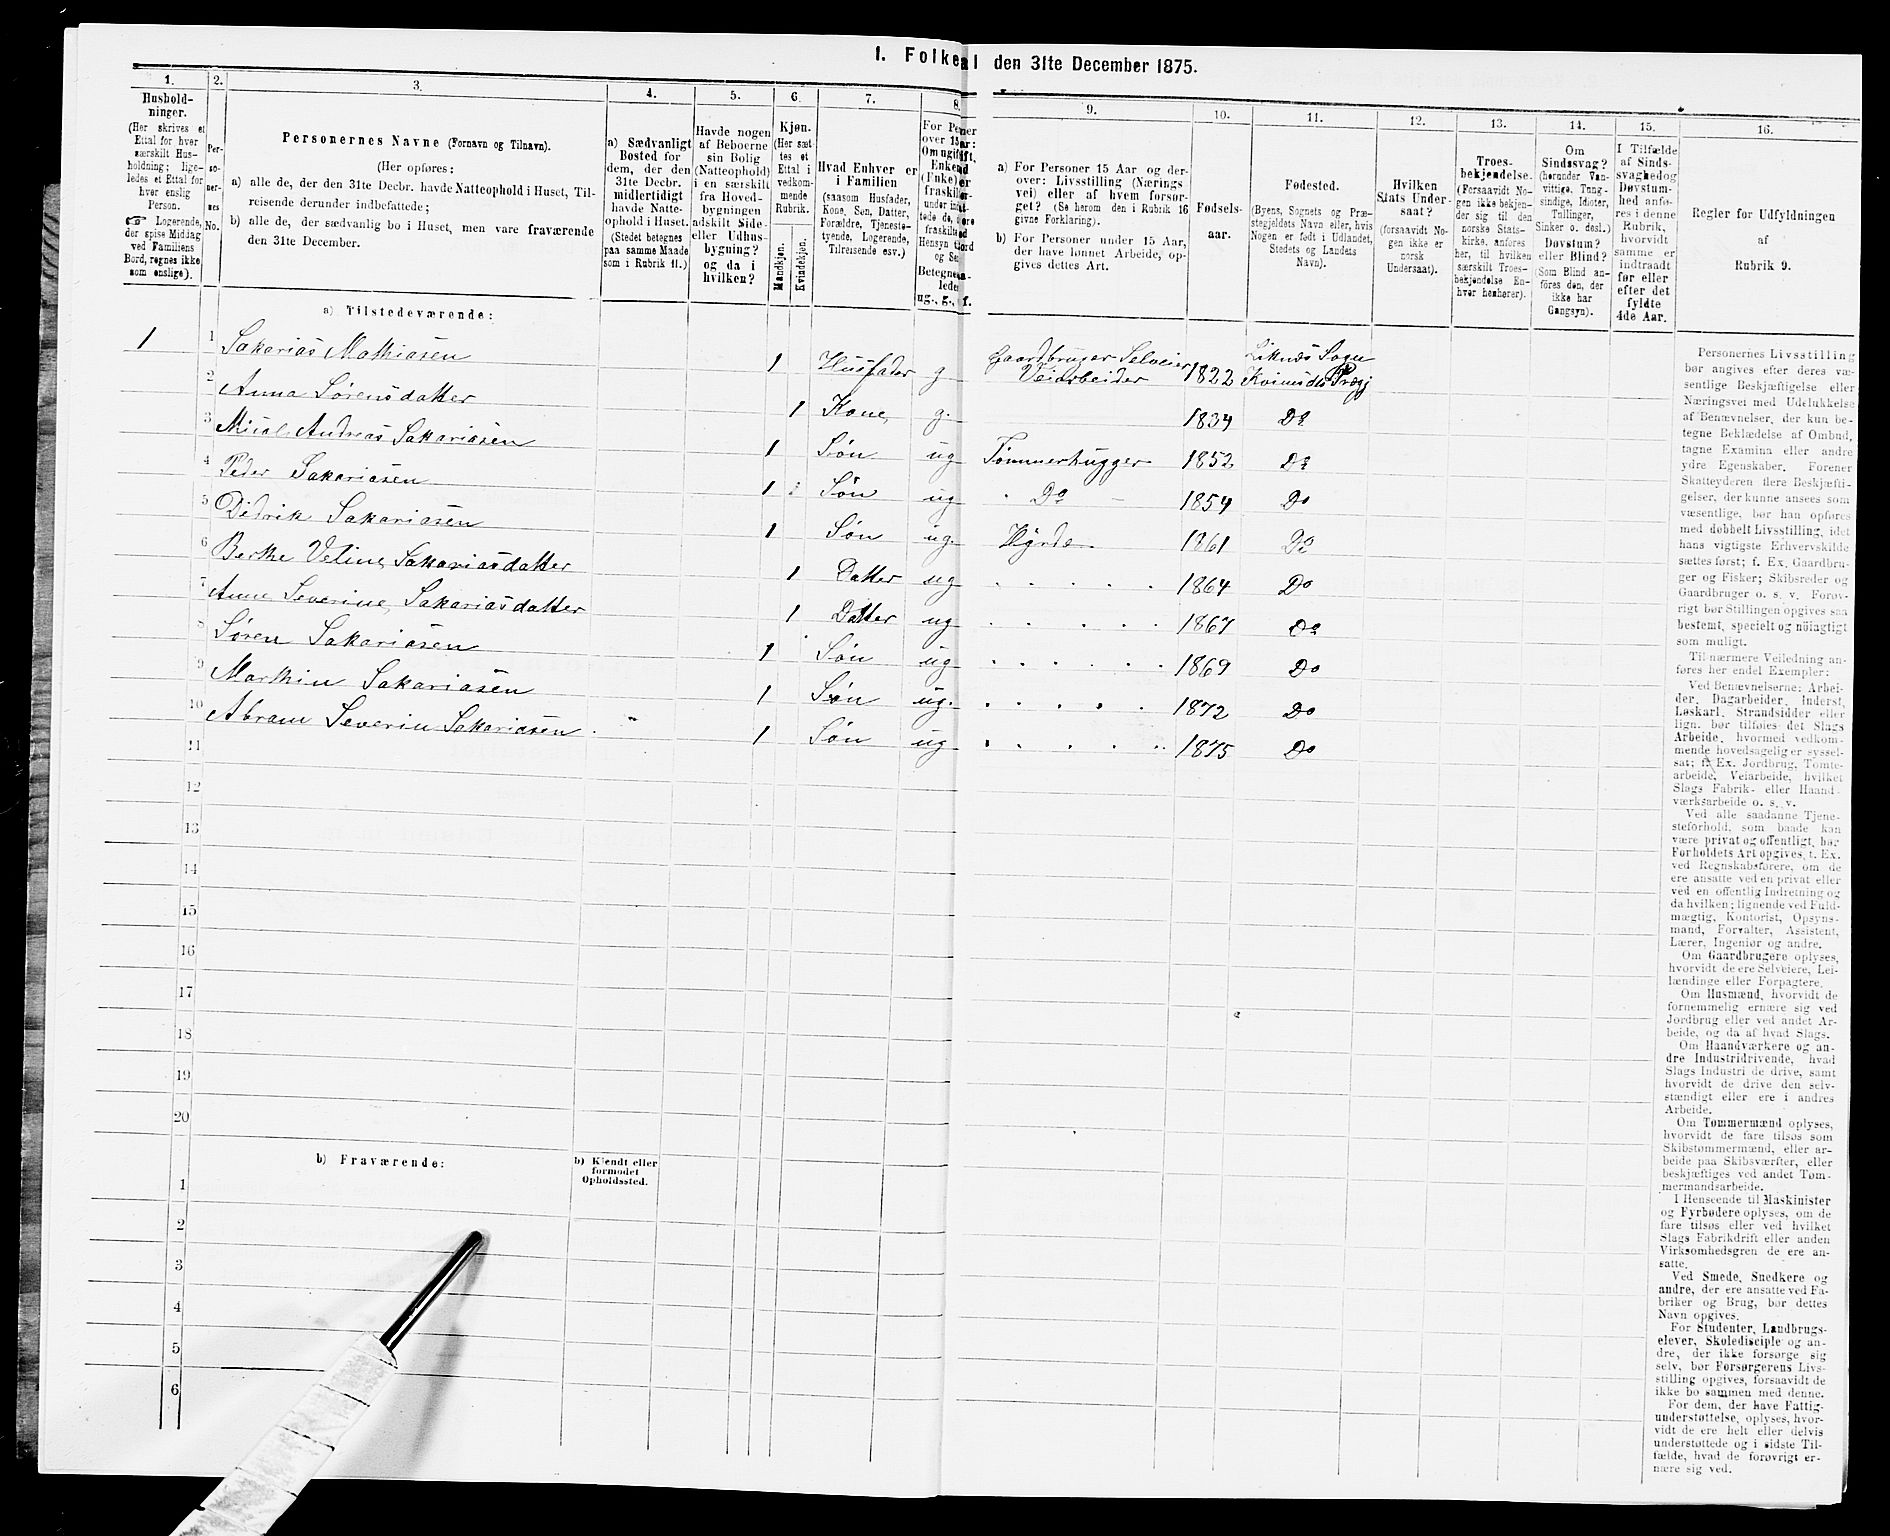 1. Folketal den 31te December 1875.
1. 2. 3. 4. 5. 6. 7. 8. 9. 10. 11. 12. 13. 14. 15. 16.
Hushold-
ninger.
(Her skrives et
Ettal for hver
særskilt Hus-
holdning; lige-
ledes et Ettal for
hver enslig
Person.
Logerende,
der spise Middag
ved Familiens
Bord, regnes ikke
som enslige).
Per-
so-
ner-
nes
No.
Personernes Navne (Fornavn og Tilnavn).
(Her opføres:
a) alle de, der den 31te Decbr. havde Natteophold i Huset, Til-
reisende derunder indbefattede;
b) alle de, der sædvanlig bo i Huset, men vare fraværende
den 31te December.
a) Sædvanligt
Bosted for
dem, der den
31te Decbr.
midlertidigt
havde Natte-
ophold i Huset.
(Stedet betegnes
paa samme Maade
som i Rubrik 11.)
Havde nogen
af Beboerne
sin Bolig
(Natteophold)
i en særskilt
fra Hoved-
bygningen
adskilt Side-
eller Udhus-
bygning?
og da i
hvilken?
Kjøn.
(Her sæt-
tes et
Ettal i
vedkom-
mende
Rubrik.
Mandkjøn.
Kvindekjøn.
Hvad Enhver er
i Familien
(saasom Husfader,
Kone, Søn, Datter,
Forældre, Tjeneste-
tyende, Logerende,
Tilreisende osv.)
ug., g., f.
a) For Personer 15 Aar og der-
over: Livsstilling (Nærings-
vei) eller af hvem forsør-
get? (Se herom den i Rubrik 16
givne Forklaring).
b) For Personer under 15 Aar,
der have lønnet Arbeide, op-
gives dettes Art.
Fødsels-
aar.
Fødested.
(Byens, Sognets og Præ-
stegjeldets Navn eller, hvis
Nogen er født i Udlandet,
Stedets og Landets
Navn).
Hvilken
Stats Under-
saat?
(forsaavidt No-
gen ikke er
norsk
Undersaat).
Troes-
bekjendelse.
(Forsaavidt No-
gen ikke bekjen-
der sig til den
norske Stats-
kirke, anføres
her, til hvilken
særskilt Troes-
bekjendelse En-
hver henhører).
Om
Sindssvag?
(herunder Van-
vittige, Tung-
sindige, Idioter,
Tullinger,
Sinker o. desl.)
Døvstum?
eller Blind?
(Som Blind an-
føres den, der
ikke har
Gangsyn).
I Tilfælde
af Sinds-
svaghed og
Døvstum-
hed anfø-
res i denne
Rubrik,
hvorvidt
samme er
indtraadt
før eller
efter det
fyldte
4de Aar.
Regler for Udfyldningen
af
Rubrik 9.
a) Tilstedeværende:
1 1 Sakarias Mathiasen 1 Husfader g Gaardbruger Selveier Veiarbeider 1822 Liknes Sogn Kvinesdls Præg
2 Anna Sørensdatter 1 Kone g. 1834 Do
3 Andreas Sakariasen 1 Søn ug Tømmerhugger 1852 Do
4 Peder Sakariasen 1 Søn ug Do 1854 Do
5 Didrik Sakariasen 1 Søn ug. Hyrde 1861 Do
6 Berthe Veline Sakariasdatter 1 Datter ug 1864 Do
7 Anne Severine Sakariasdatter 1 Datter ug 1867 Do
8 Søren Sakariasen 1 Søn ug 1869 Do
9 Marthin Sakariasen 1 Søn ug. 1872 Do
10 Abram Severin Sakariasen 1 Søn ug 1875 Do
11
12
13
14
15
16
17
18
19
20
b) Fraværende:
b) Kjendt eller
formodet
Opholdssted.
1
2
3
4
5
6
Personernes Livsstilling
bør angives efter deres væ-
sentlige Beskjæftigelse eller
Næringsvei med Udelukkelse
af Benævnelser, der kun be-
tegne Beklædelse af Ombud,
tagne Examina eller andre
ydre Egenskaber. Forener
Skatteyderen flere Beskjæfti-
gelser, der kunne ansees som
væsentlige, bør han opføres
med dobbelt Livsstilling, idet
hans vigtigste Erhvervskilde
sættes først; f. Ex. Gaardbru-
ger og Fisker; Skibsreder og
Gaardbruger o. s. v. Forøv-
rigt bør Stillingen opgives saa
bestemt, specielt og nöiagtigt
som muligt.
Til nærmere Veiledning an-
føres her endel Exempler:
Ved Benævnelserne: Arbei-
der, Dagarbeider, Inderst,
Løskarl, Strandsidder eller
lign. bør tilføies det Slags
Arbeide, hvormed vedkom-
mende hovedsagelig er syssel-
sat; f. Ex. Jordbrug, Tomte-
arbeide, Veiarbeide, hvilket
Slags Fabrik- eller Haand-
værksarbeide o. s. v.
Ved alle saadanne Tjene-
steforhold, som baade kan
være privat og offentligt, bør
Forholdets Art opgives, t. Ex.
ved Regnskabsførere, om de
ere ansatte ved en privat eller
ved en offentlig Indretning og
da hvilken; lignende ved Fuld-
mægtig, Kontorist, Opsyns-
mand, Forvalter, Assistent,
Lærer, Ingeniør og andre.
Om Gaardbrugere oplyses,
hvorvidt de ere Selveiere, Lei-
lændinge eller Forpagtere.
Om Husmænd, hvorvidt de
fornemmelig ernære sig ved
Jordbrug eller ved andet Ar-
beide, og da af hvad Slags.
Om Haandværkere og an-
dre Industridrivende, hvad
Slags Industri de drive, samt
hvorvidt de drive den selv-
stændigt eller ere i andres
Arbeide.
Om Tømmermænd oplyses,
hvorvidt de fare tilsøs som
Skibstømmermænd, eller ar-
beide paa Skibsværfter, eller
beskjæftiges ved andet Tøm-
mermandsarbeide.
I Henseende til Maskinister
og Fyrbødere oplyses, om de
fare tilsøs eller ved hvilket
Slags Fabrikdrift eller anden
Virksomhedsgren de ere an-
satte.
Ved Smede, Snedkere og
andre, der ere ansatte ved Fa-
briker og Brug, bør dettes
Navn opgives.
For Studenter, Landbrugs-
elever, Skoledisciple og an-
dre, der ikke forsørge sig
selv, bør Forsørgerens Livs-
stilling opgives, forsaavidt de
ikke bo sammen med denne.
For dem, der have Fattig-
understøttelse, oplyses, hvor-
vidt de ere helt eller delvis
understøttede og i sidste Til-
fælde, hvad de forøvrigt er-
nære sig ved.